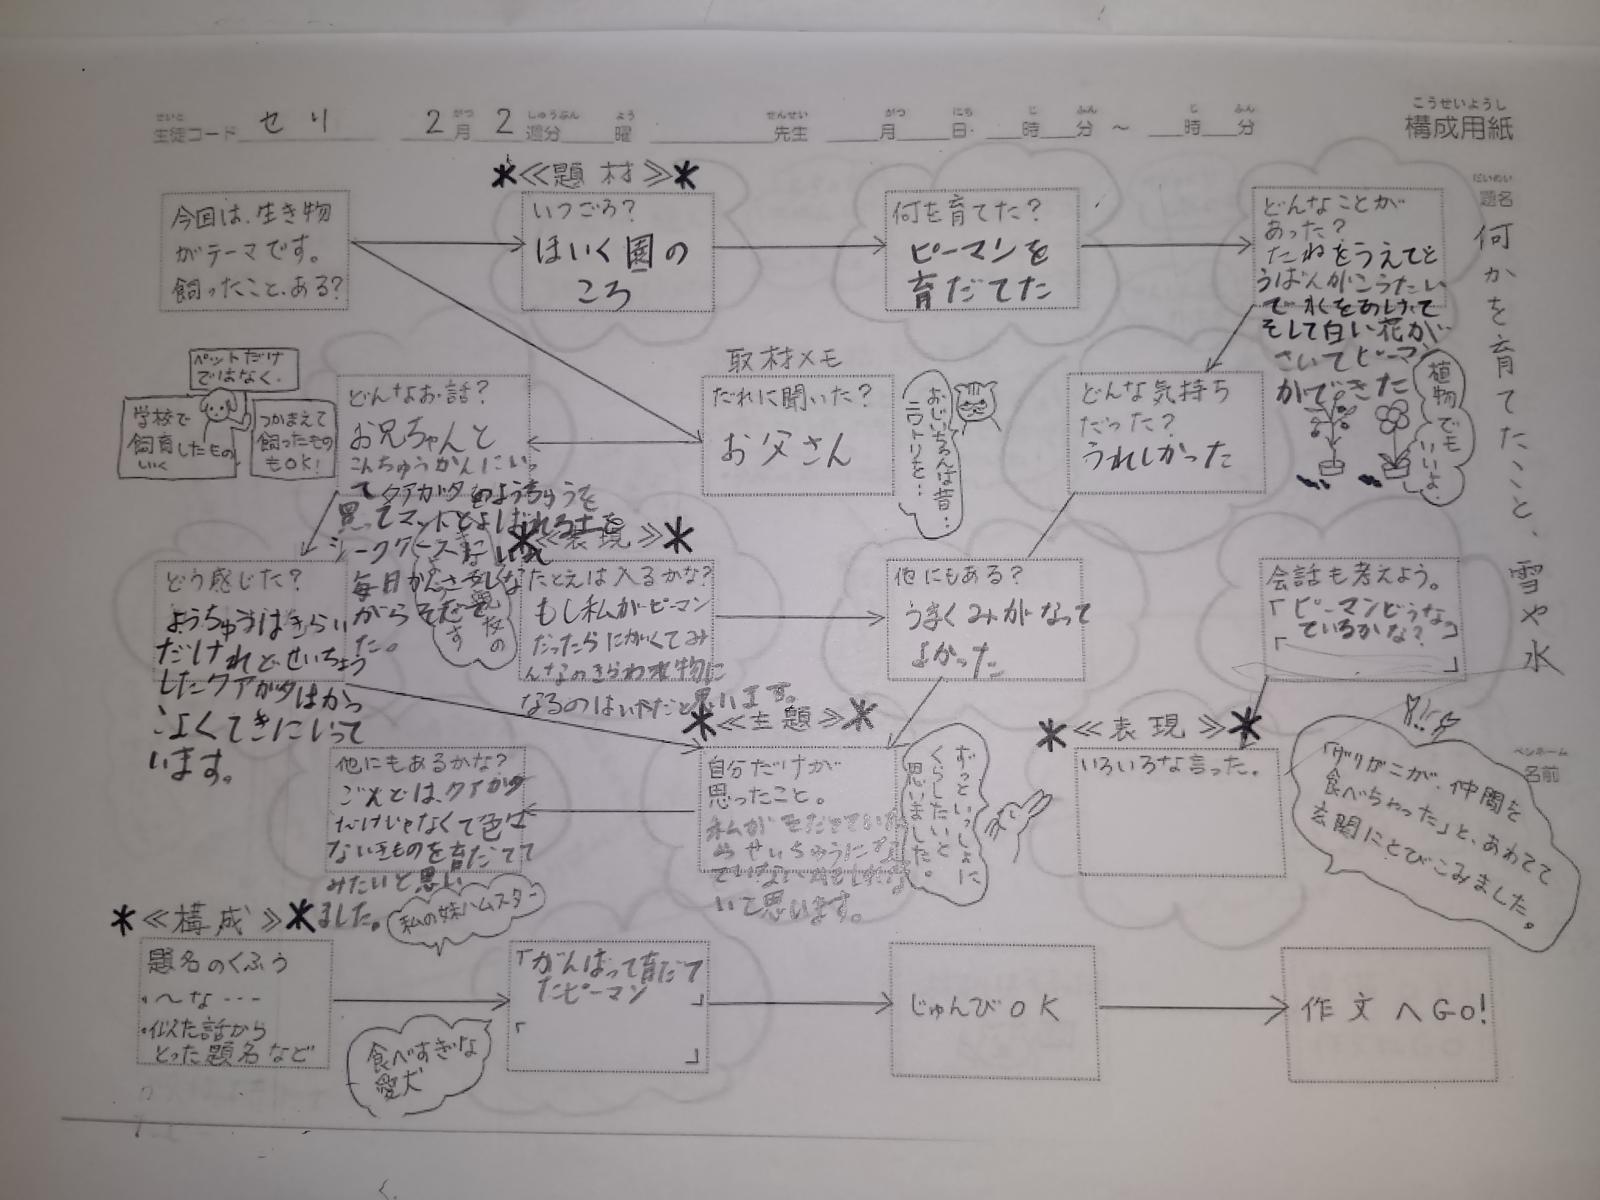 こうせいようし
構成用紙
せいと
生徒コード セリ
がつ しゅうぶん よう
2月2週分 曜
せんせい
先生
がつ にち じ ふん じ ふん
月 日 時 分 〜 時 分
だいめい
題名
何かを育てたこと、雪や水
ペンネーム
名前
今回は、生き物
がテーマです。
飼ったこと、ある?
≪題材≫
いつごろ?
ほいく園の
ころ
何を育てた?
ピーマンを
育だてた
どんなことが
あった?
たねをうえてと
うばんがこうたい
で水をあげて
そして白い花が
さいてピーマン
ができた
植物でも
いいよ。
ペットだけ
ではなく、
学校で
飼育したもの
いく
つかまえて
飼ったもの
もOK!
どんなお話?
お兄ちゃんと
こんちゅうかんにいっ
てクアガタのようちゅうを
買ってマットとよばれる土を
シークケースに
毎日かんさつしな
がらそだて
た。
取材メモ
だれに聞いた?
お父さん
おじいちゃんは昔…
ニワトリを…
どんな気持ち
だった?
うれしかった
どう感じた?
ようちゅうはきらい
だけれどせいちょう
したクアガタはかっ
こよくてきにいって
います。
≪表現≫
たとえは入るかな?
もし私がピーマン
だったらにがくてみ
んなのきらわれ物に
なるのはいやだと思います。
他にもある?
うまくみがなって
よかった
会話も考えよう。
「ピーマンどうなっ
ているかな?」
「 」
他にもあるかな?
こんどは、クアガタ
だけじゃなくて色は
ないきものを育だてて
みたいと思い
ました。
私の妹ハムスター
≪主題≫
自分だけが
思ったこと。
私がそだてていた
らせいちゅうに
いて思います。
ずっといっしょに
くらしたいと
思いました。
≪表現≫
いろいろな言った。
「ザリガニが、仲間を
食べちゃった」と、あわてて
玄関にとびこみました。
≪構成≫
題名のくふう
・〜な…
・似た話から
とった題名など
食べすぎな
愛犬
「がんばって育だて
たピーマン 」
「 」
じゅんびOK
作文へGo!